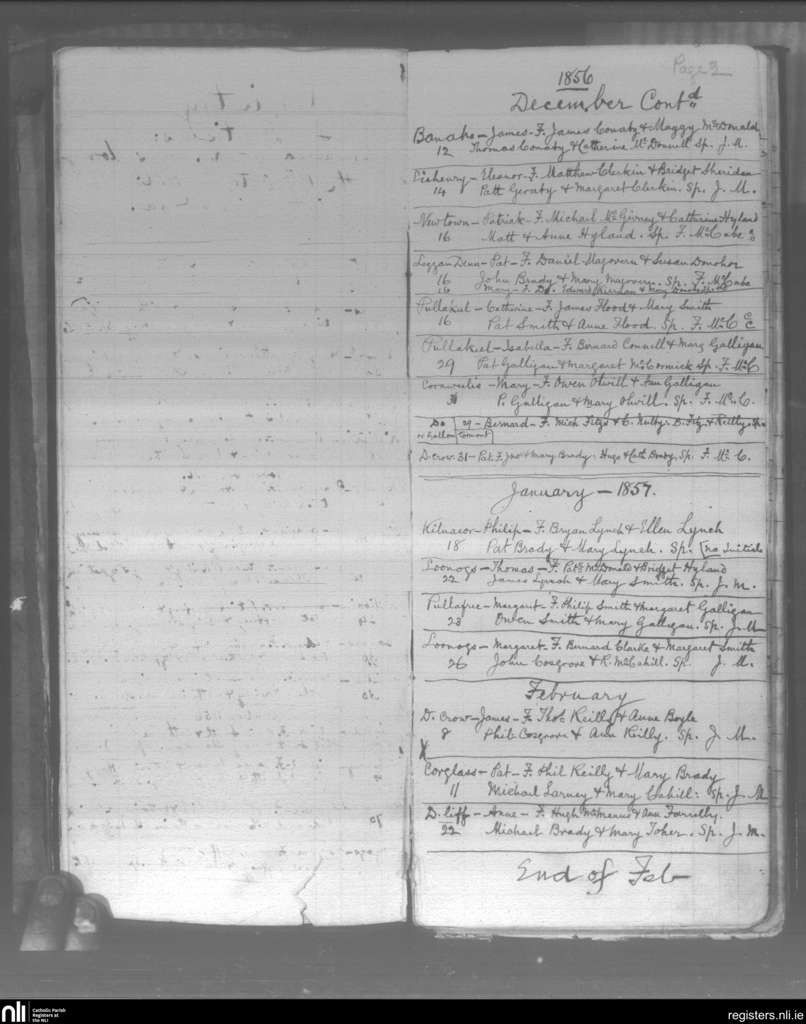 Page 3
1856
December Contd
Banaho - James - F. James Conaty & Maggy McDonald
12 Thomas Conaty & Catherine McDonnell Sp. J. M.
- Eleanor - F. Matthew Clerkin & Bridget Sheridan
14 Patt Geraty & Margaret Clerkin. Sp. J. M.
Newtown - Patrick - F. Michael McGivney & Catherine Hyland
16 Matt & Anne Hyland. Sp. F. McCabe
Loggan Dunn - Pat - F. Daniel Magovern & Susan Donohoe
16 John Brady & Mary Magovern. Sp. F. McCabe
16 Mary - F. Do. Edward Kiernan & Mary
Pullakeel - Catherine - F. James Flood & Mary Smith
16 Pat Smith & Anne Flood. Sp. F. McC
Pullakeel - Isabella - F. Bernard Connell & Mary Galligan
29 Pat Galligan & Margaret McCormick Sp. F. McC
- Mary - F. Owen Clwill & Ann Galligan
P. Galligan & Mary Clwill. Sp. F. McC.
Do 29 - Bernard - F. Mich Fitzs & C. D. Fitz & Reilly Sp.
or Gallon
D. Crow. 31 - Pat. F. Jno & Mary Brady. Hugo & Cath Sp. F. Mc C.
January - 1857.
Kilnacor - Philip - F. Bryan Lynch & Ellen Lynch
18 Pat Brady & Mary Lynch. Sp. [No Initials
Loonogs - Thomas - F. Patk McDonald & Bridget Hyland
22 James Lynch & Mary Smith. Sp. J. M.
Pullafree - Margaret - F. Philip Smith & Margaret Galligan
23 Owen Smith & Mary Galligan. Sp. J. M.
Loonogs - Margaret - F. Bernard Clarke & Margaret Smith
26 John Cosgrove & R. McCahill. Sp. J. M.
February
D. Crow - James - F. Thos Reilly & Anne Boyle
8 Phil Cosgrove & Ann Reilly. Sp. J. M.
X
Corglass - Pat - F. Phil Reilly & Mary Brady
11 Michael Larney & Mary Cahill. Sp. J. M.
D. liff - Anne - F. Hugh McManus & Ann Farrelly.
22 Michael Brady & Mary Toher. Sp. J. M.
End of Feb
nli
Catholic Parish
Registers at
the NLI
registers.nli.ie